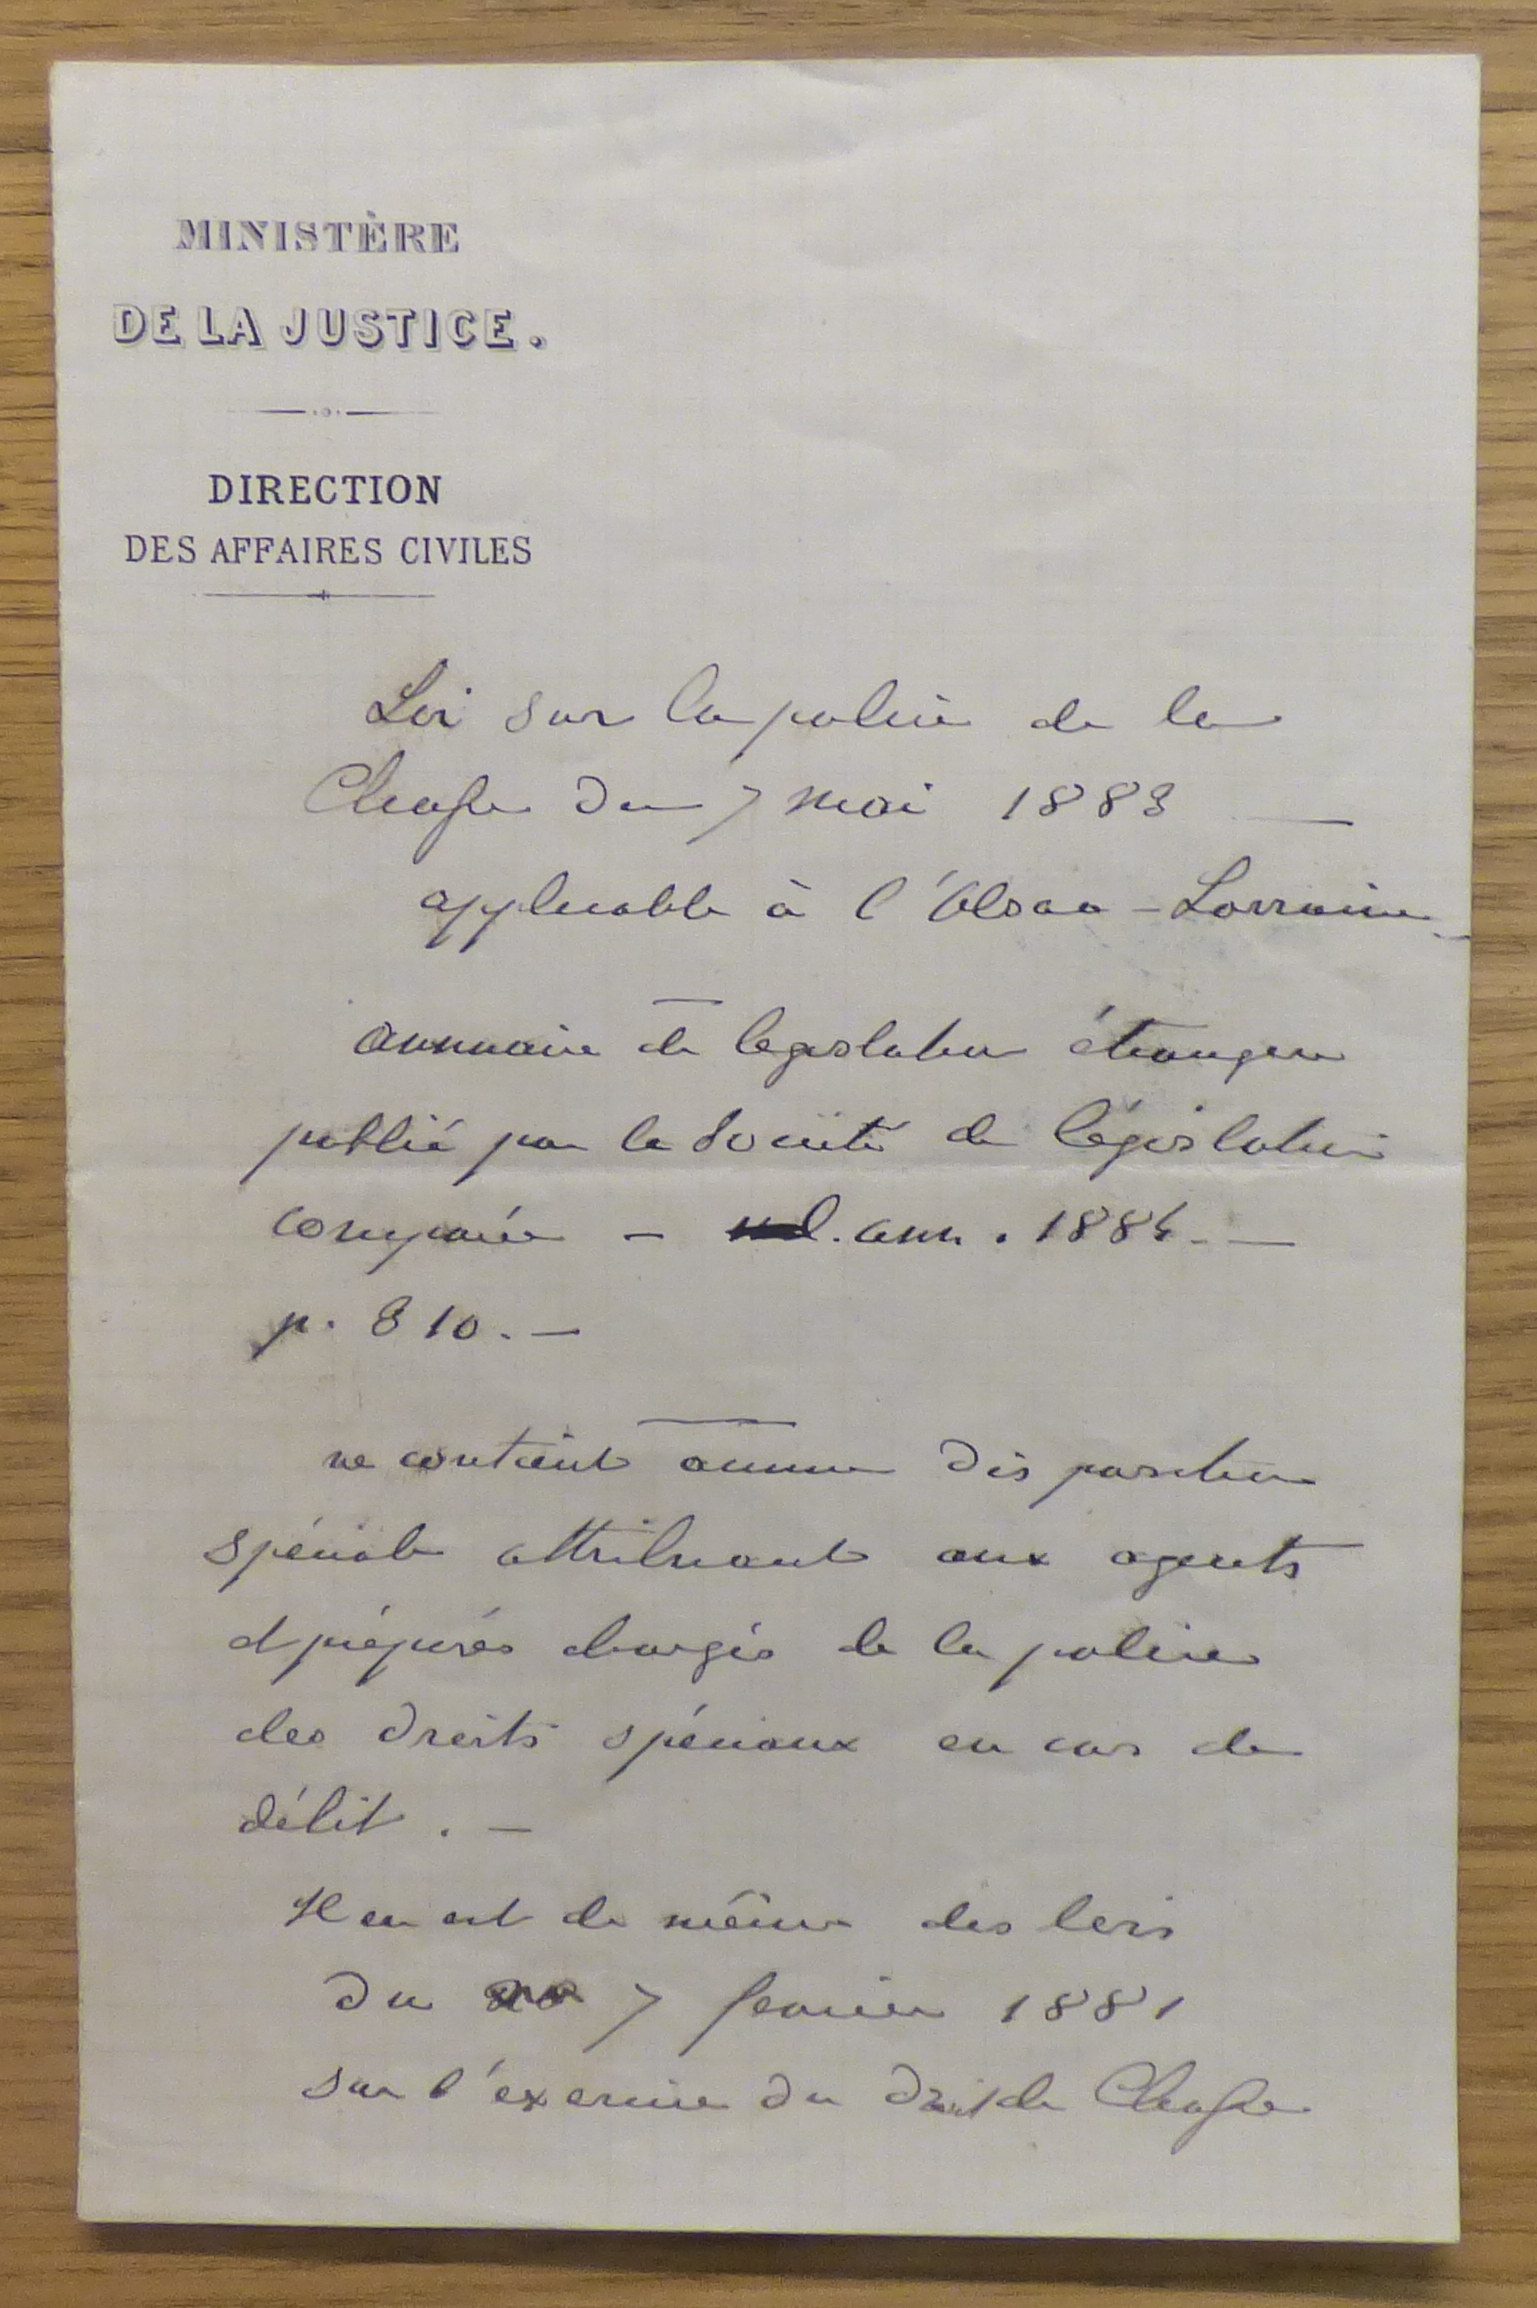 MINISTÈRE
DE LA JUSTICE.
DIRECTION
DES AFFAIRES CIVILES
Loi sur la police de la
Chasse du 7 mai 1883 —
applicable à l'Alsace-Lorraine
annuaire de legislation étrangere
publié par la Société de législation
comparée — ann. 1884. —
p. 310. —
ne contient aucune disposition
spéciale attribuant aux agents
et préposés chargés de la police
des droits spéciaux en cas de
délit. —
Il en est de même des lois
du 7 fevrier 1881
sur l'exercice du droit de Chasse